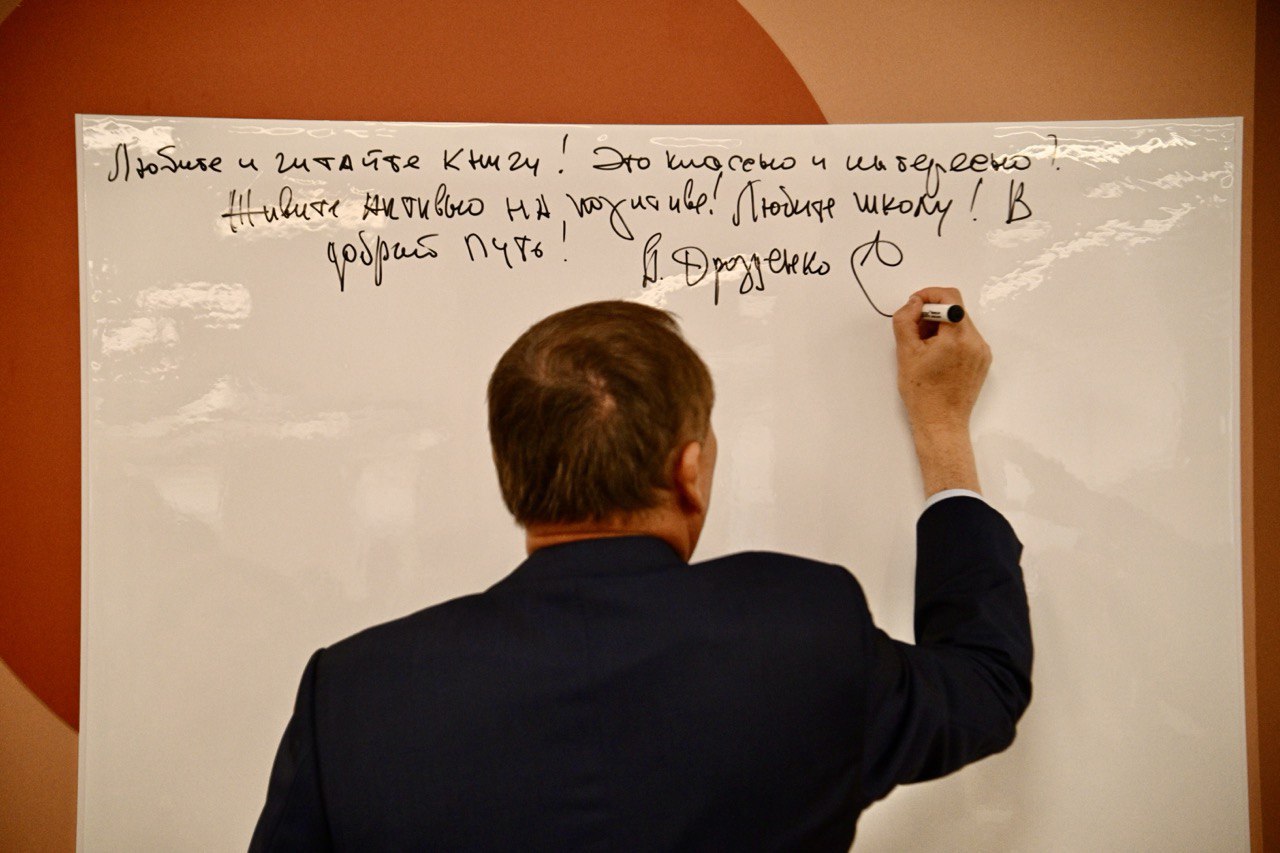 Любите и читайте книгу! Это классно и интересно!
Живите активно на позитиве! Любите школу! В
добрый путь! А. Дрозденко